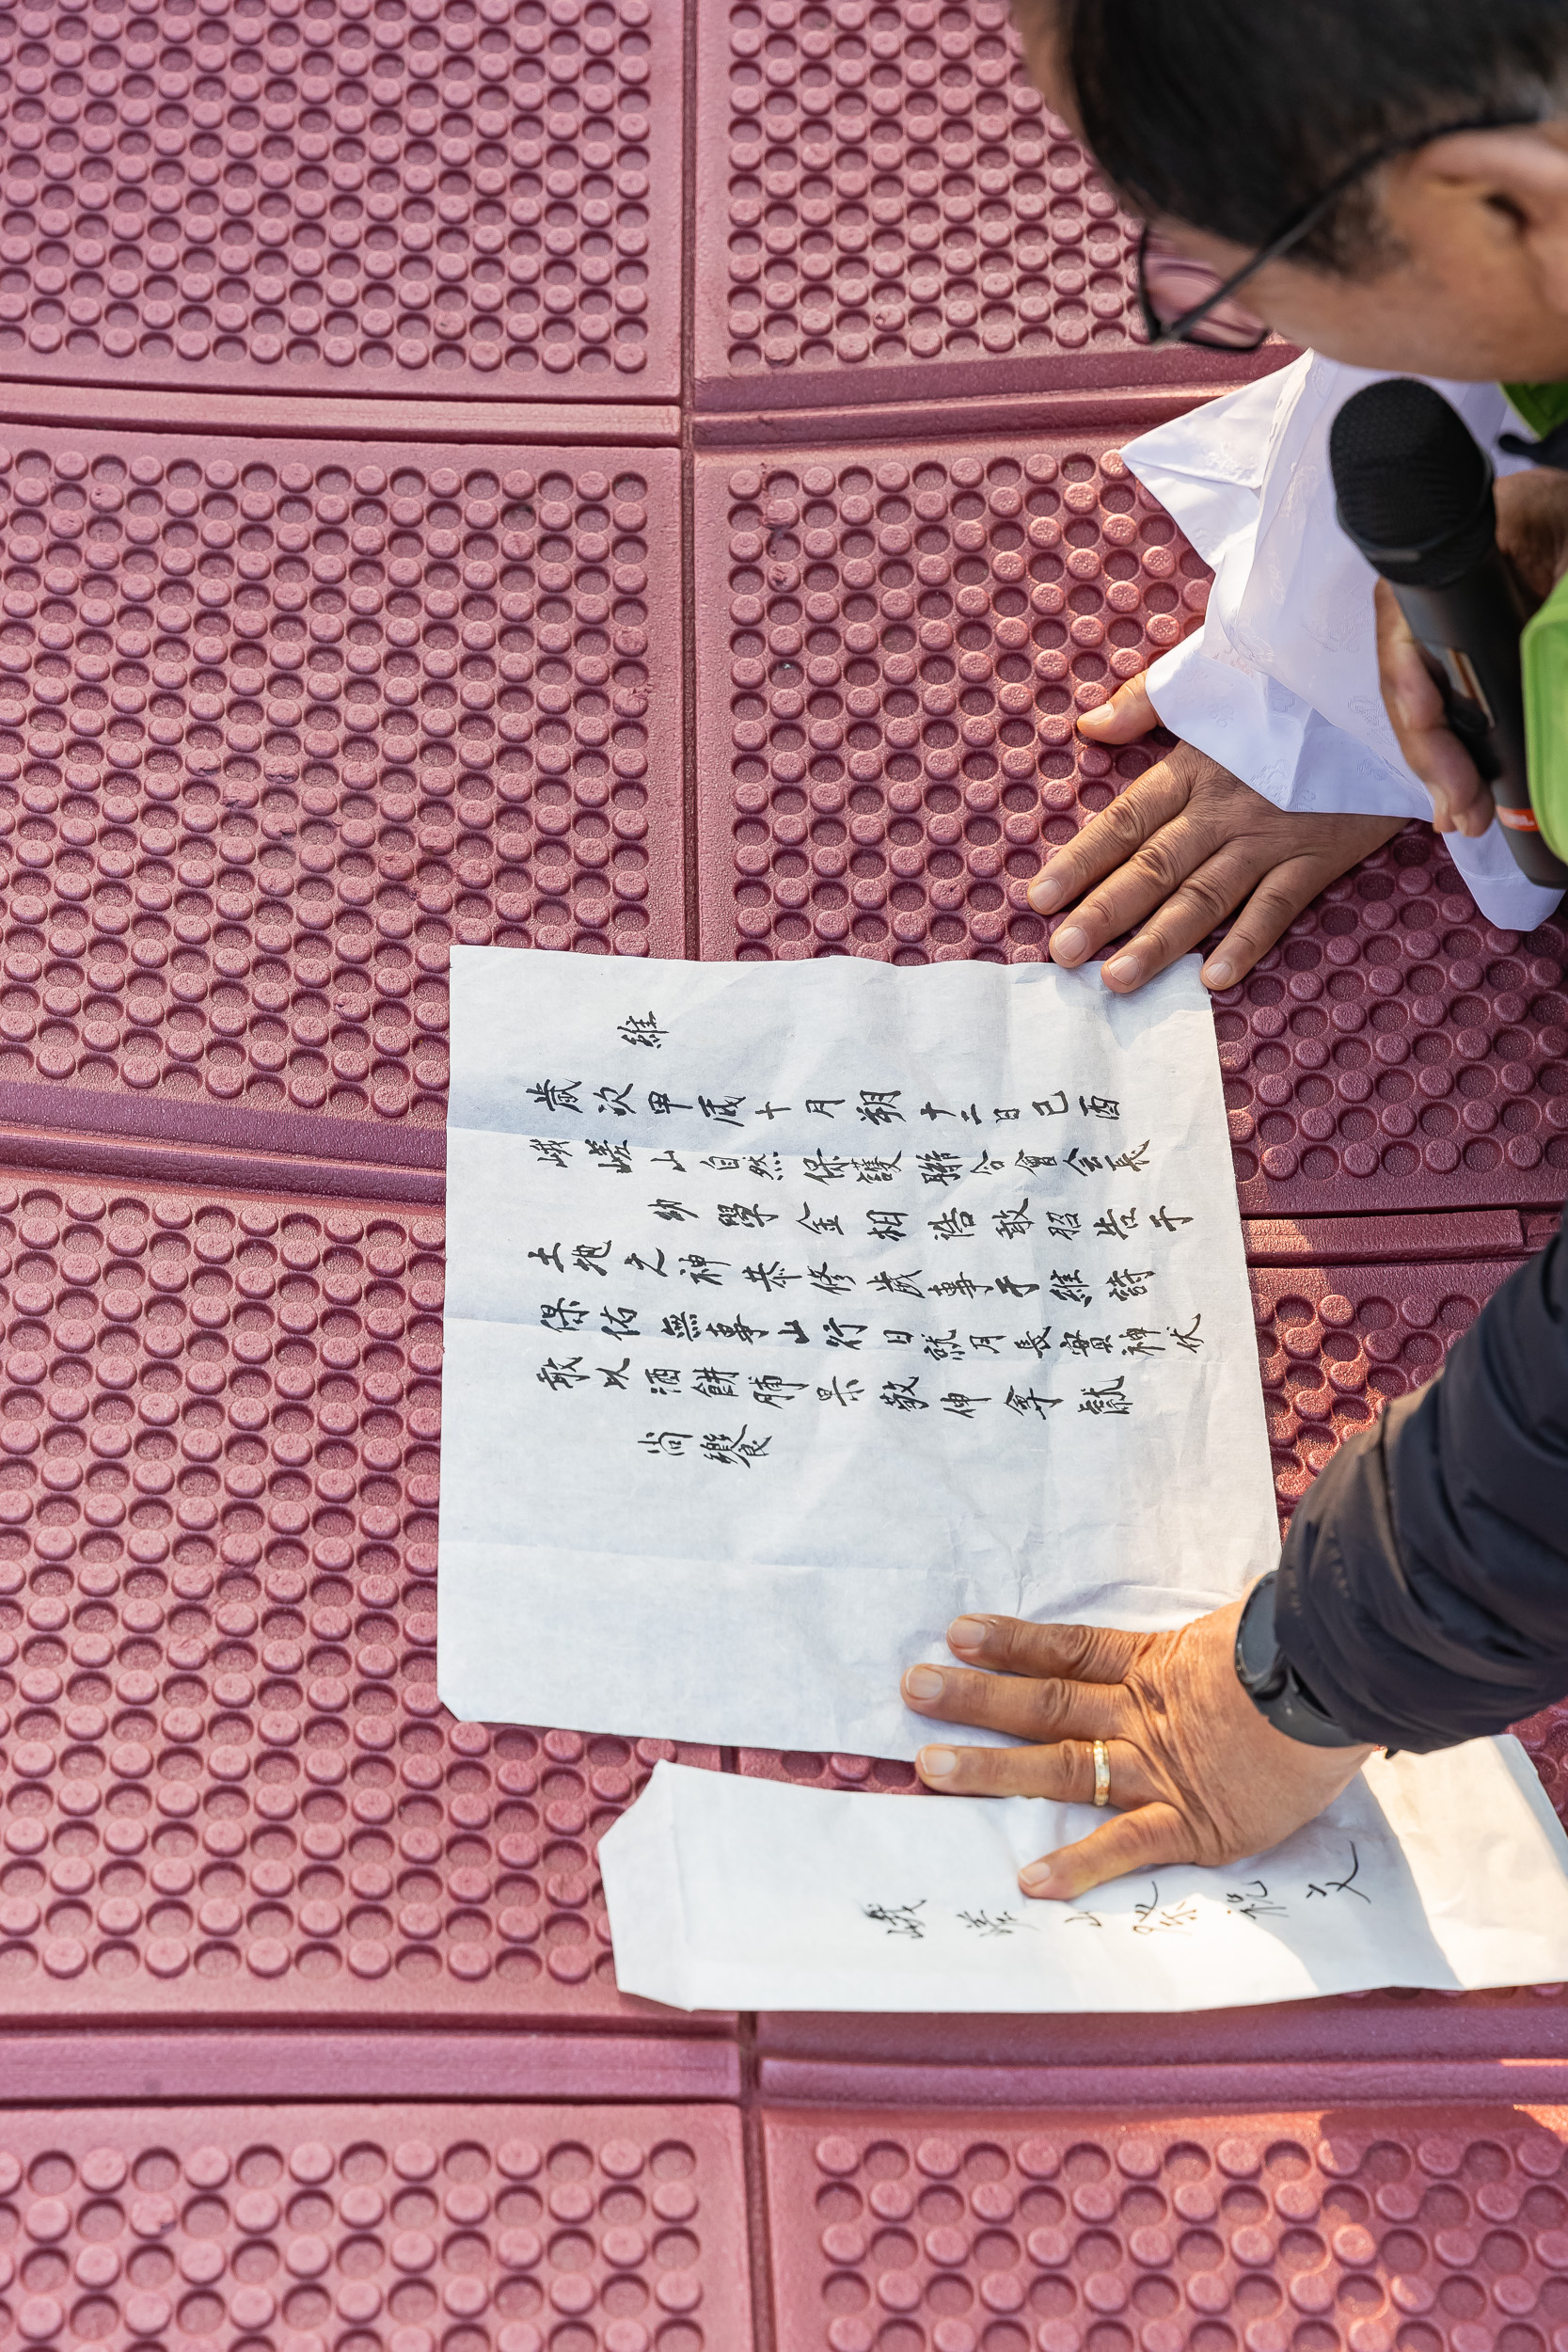 維
歲次甲辰十月朔十二日己酉
峨嵯山自然保護聯合會會長
幼學金相浩敢昭告于
土地之神恭修歲事于維時
保佑無事山行日就月長實神伏
敢以酒餠脯果敬伸奠獻
尙饗
峨嵯山祭祝文